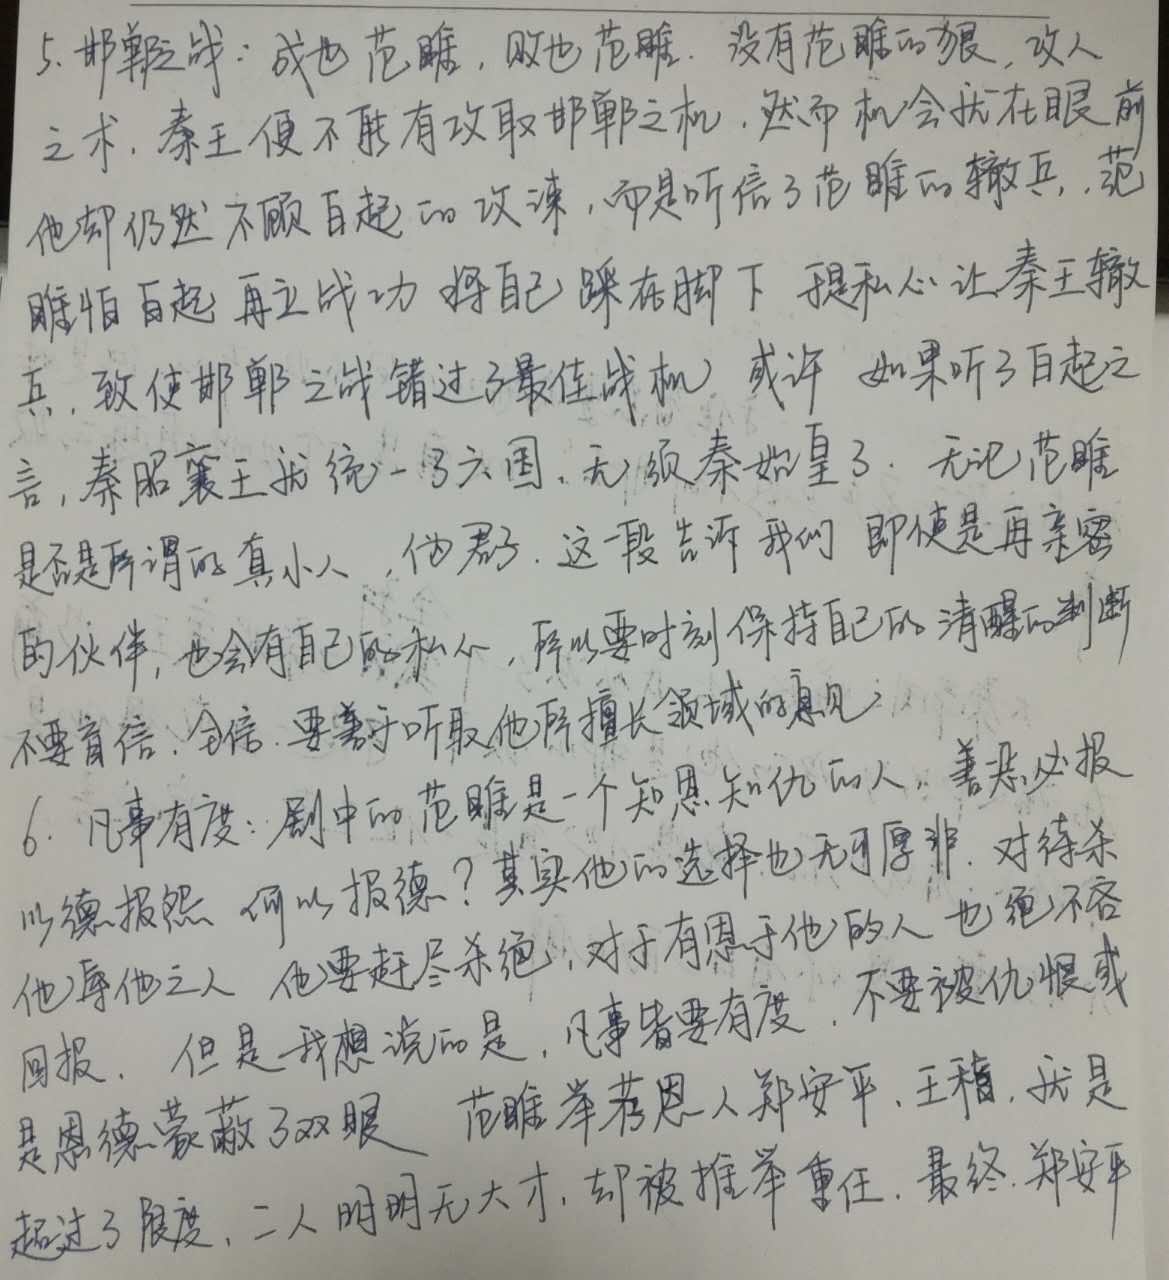 5. 邯郸之战：成也范雎，败也范雎. 没有范雎的狠，攻人
之术，秦王便不能有攻取邯郸之机，然而机会就在眼前
他却仍然不顾白起的攻谏，而是听信了范雎的辙兵，范
雎怕白起再立战功 将自己踩在脚下 于是私心让秦王辙
兵，致使邯郸之战错过了最佳战机 或许 如果听了白起之
言，秦昭襄王就统一了六国，无须秦始皇了. 无论范雎
是否是所谓的真小人，伪君子. 这一段告诉我们 即使是再亲密
的伙伴，也会有自己的私心，所以要时刻保持自己的清醒的判断
不要盲信、全信. 要善于听取他所擅长领域的意见.
6. 凡事有度：剧中的范雎是一个知恩知仇的人，善恶必报
以德报怨 何以报德？其实他的选择也无可厚非. 对待杀
他辱他之人 他要赶尽杀绝，对于有恩于他的人 也绝不吝
回报. 但是我想说的是，凡事皆要有度，不要被仇恨或
是恩德蒙蔽了双眼 范雎举荐恩人郑安平、王稽，就是
超过了限度，二人明明无大才，却被推举重任. 最终. 郑安平